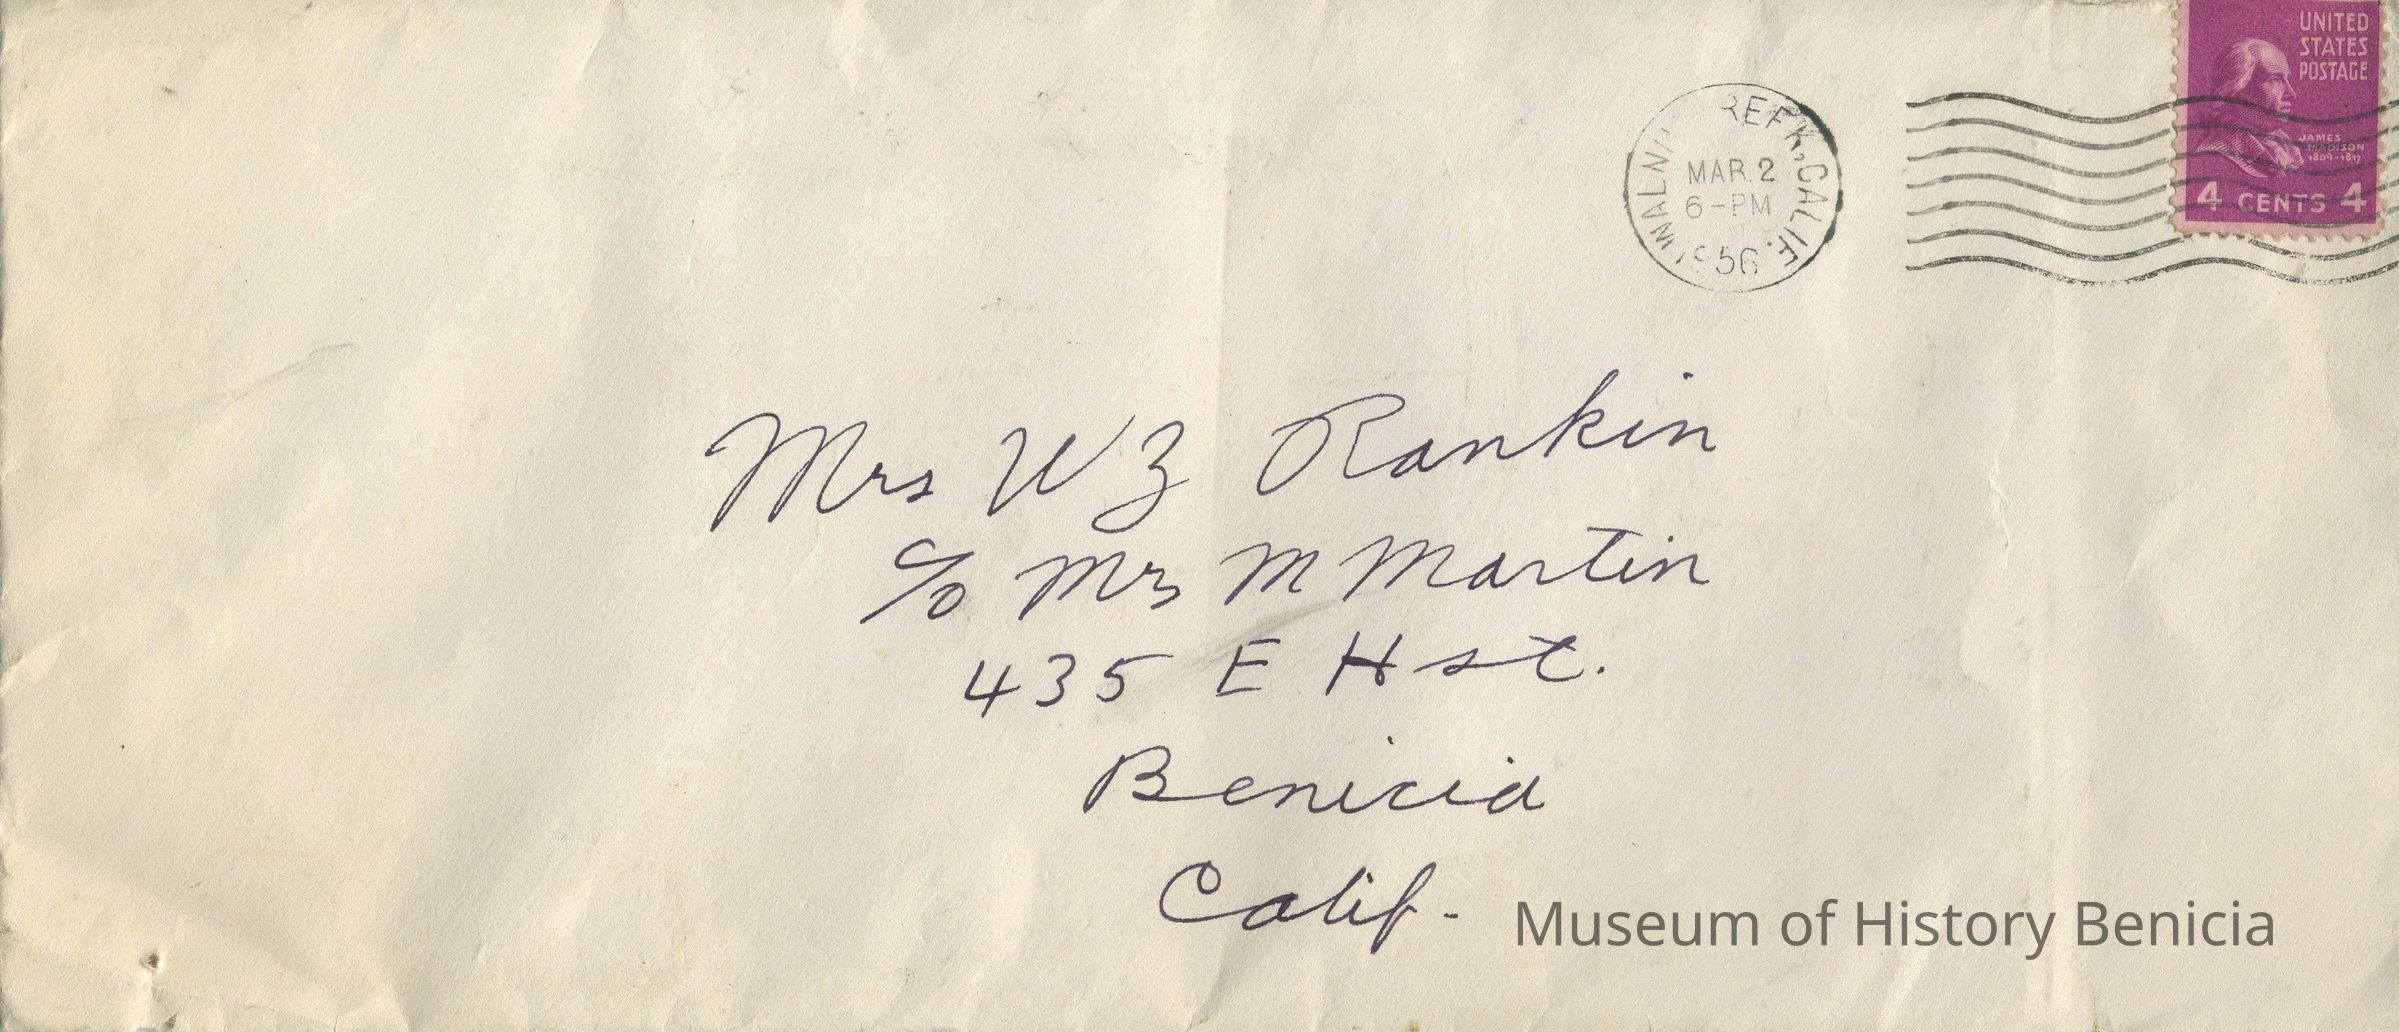 UNITED
STATES
POSTAGE
JAMES
MADISON
1809-1817
4 CENTS 4
CALIF.
MAR 2
6-PM
1956
Mrs W Z Rankin
c/o Mrs M Martin
435 E H st.
Benicia
Calif-
Museum of History Benicia